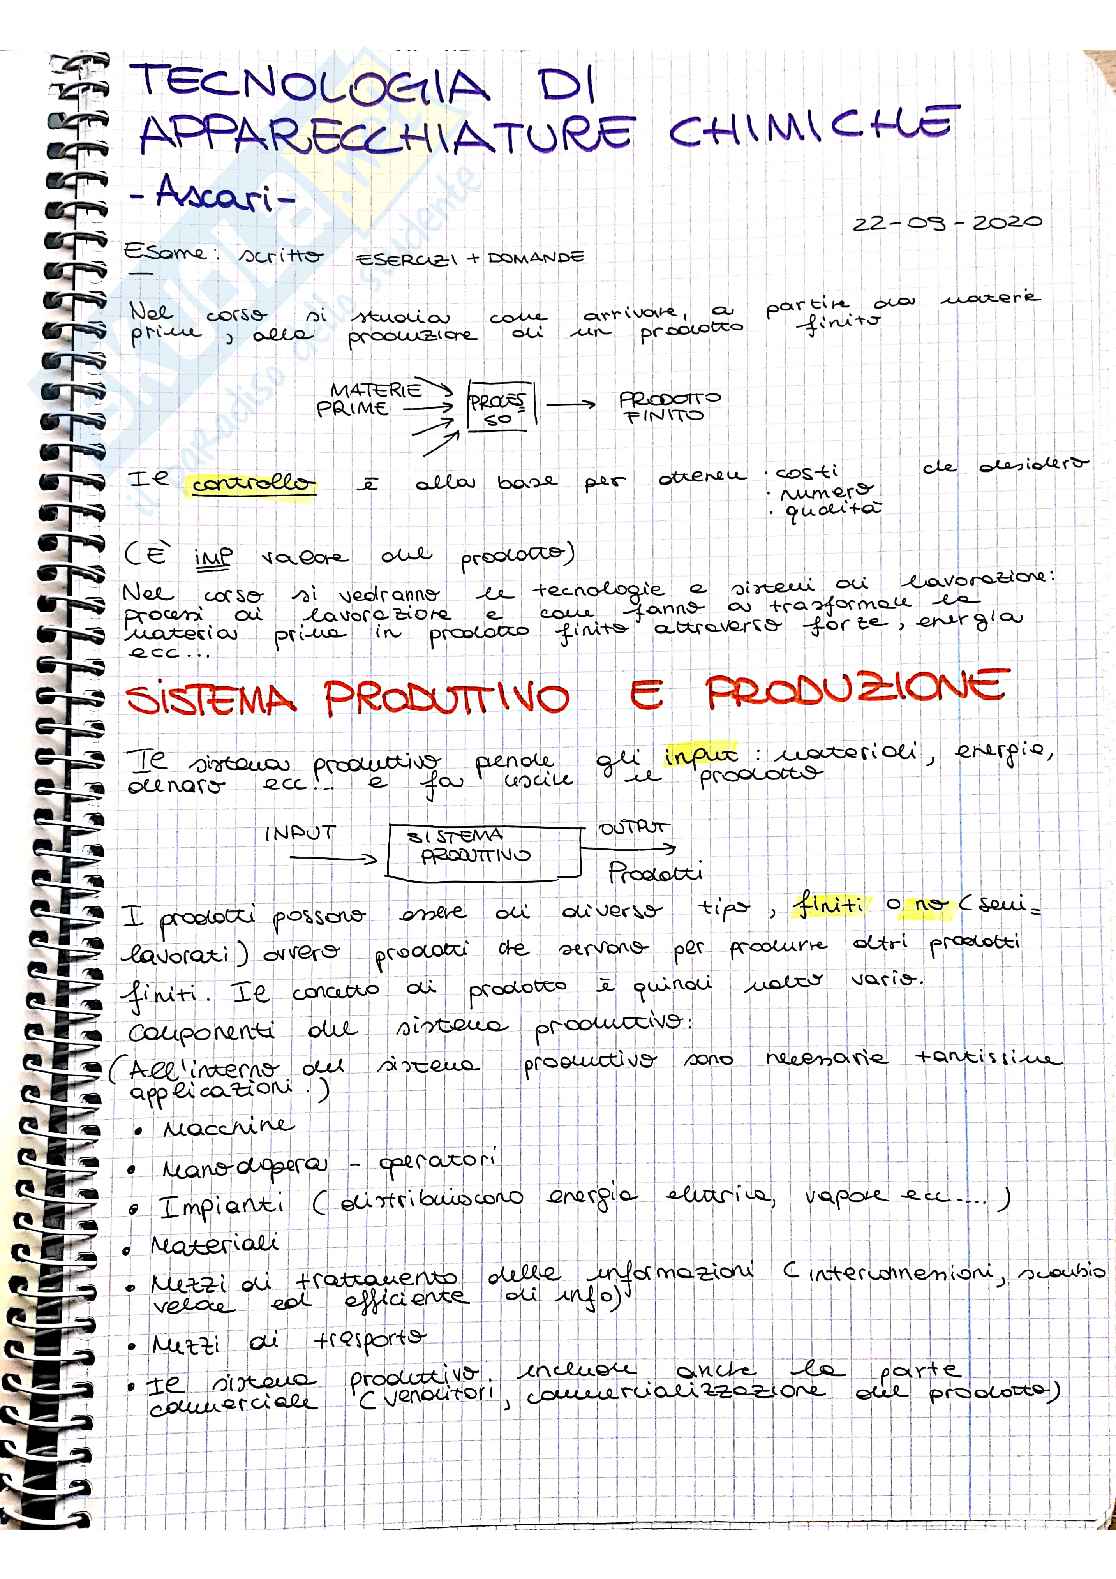 TECNOLOGIA DI
APPARECCHIATURE CHIMICHE
- Ascari -
22-09-2020
Esame: scritto ESERCIZI + DOMANDE
Nel corso si studia come arrivare, a partire da materie
prime, alla produzione di un prodotto finito
MATERIE
PRIME
PROCES
SO
PRODOTTO
FINITO
Il controllo è alla base per ottenere · costi che desidero
· numero
· qualità
(È IMP valore del prodotto)
Nel corso si vedranno le tecnologie e sistemi di lavorazione:
processi di lavorazione e come fanno a trasformare la
materia prima in prodotto finito attraverso forze, energia
ecc...
SISTEMA PRODUTTIVO E PRODUZIONE
Il sistema produttivo prende gli input: materiali, energia,
denaro ecc... e fa uscire il prodotto
INPUT
SISTEMA
PRODUTTIVO
OUTPUT
Prodotti
I prodotti possono essere di diverso tipo, finiti o no (semi=
lavorati) ovvero prodotti che servono per produrre altri prodotti
finiti. Il concetto di prodotto è quindi molto vario.
Componenti del sistema produttivo:
(All'interno del sistema produttivo sono necessarie tantissime
applicazioni.)
• Macchine
• Manodopera - operatori
• Impianti (distribuiscono energia elettrica, vapore ecc....)
• Materiali
• Mezzi di trattamento delle informazioni (interconnessioni, scambio
veloce ed efficiente di info)
• Mezzi di trasporto
• Il sistema produttivo include anche la parte
commerciale (venditori, commercializzazione del prodotto)